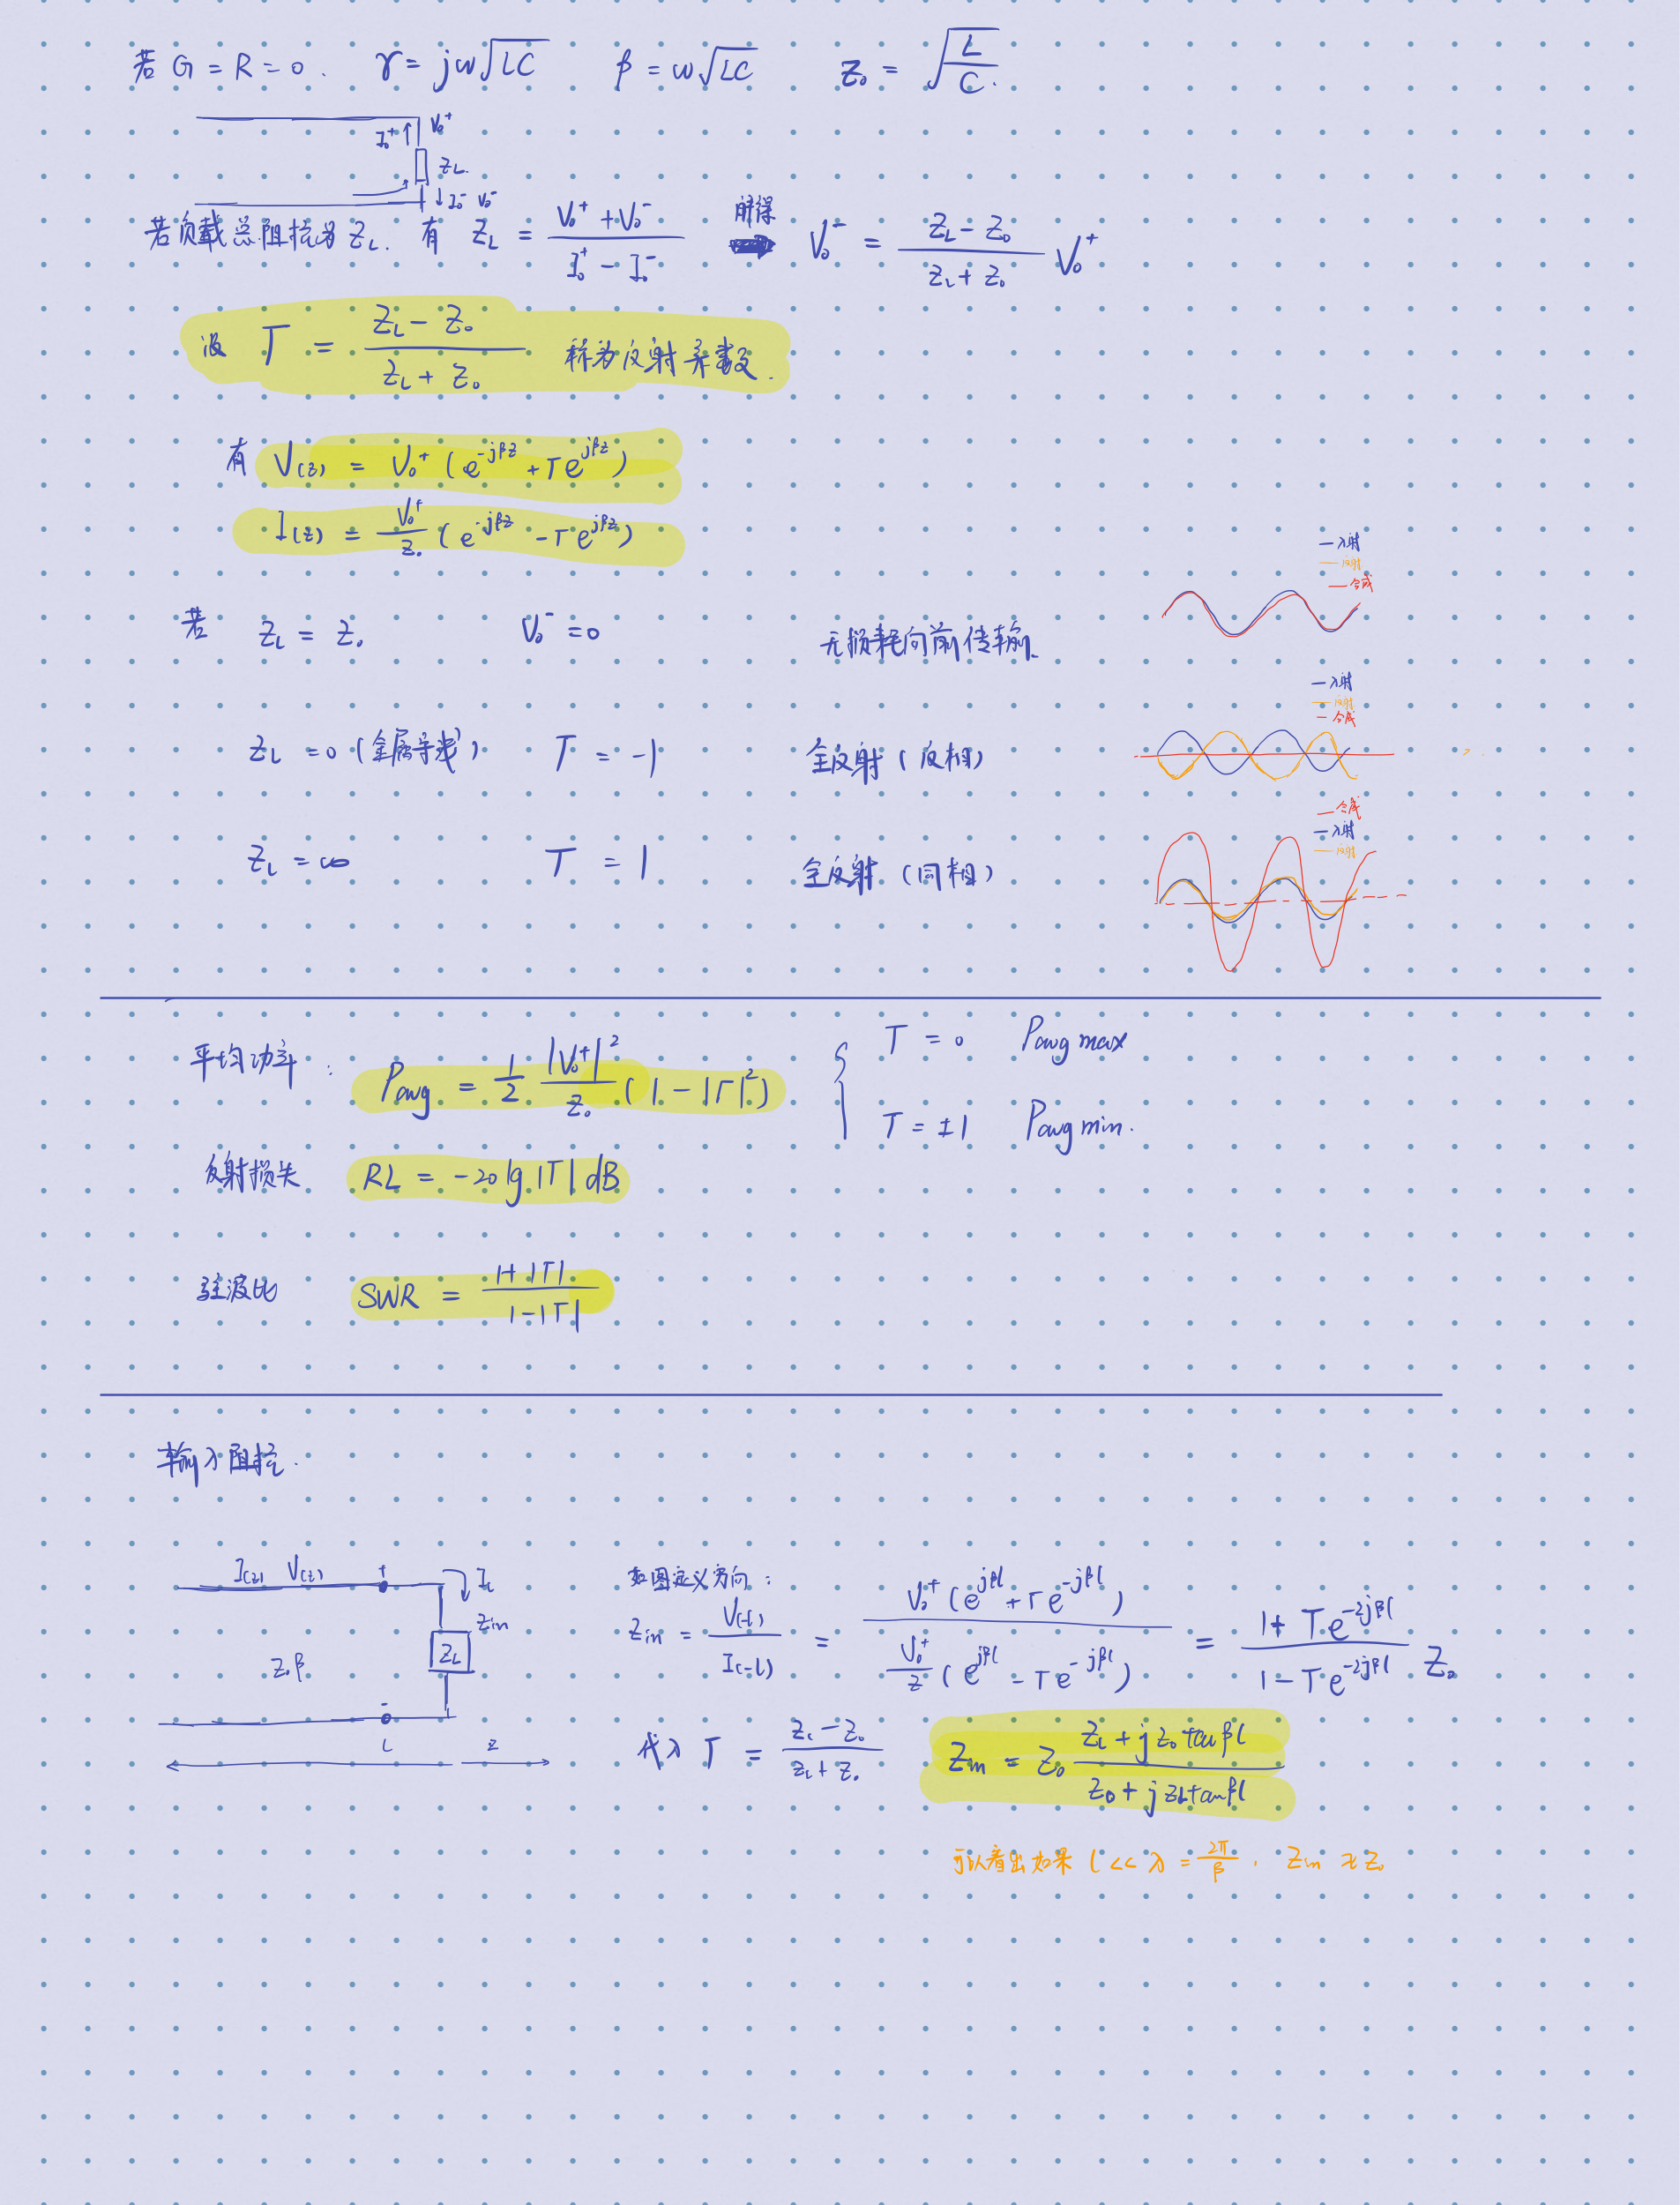 若 G = R = 0 . γ = jω√LC β = ω√LC Z₀ = √(L/C).
I₀⁺ ↑ V₀⁺
Z_L.
↓ I₀⁻ V₀⁻
若负载总阻抗为 Z_L. 有 Z_L = (V₀⁺ + V₀⁻)/(I₀⁺ - I₀⁻) 解得 V₀⁻ = (Z_L - Z₀)/(Z_L + Z₀) V₀⁺
设 Γ = (Z_L - Z₀)/(Z_L + Z₀) 称为反射系数.
有 V(z) = V₀⁺ (e^{-jβz} + Γe^{jβz})
I(z) = V₀⁺/Z₀ (e^{-jβz} - Γe^{jβz})
— 入射
— 反射
— 合成
若 Z_L = Z₀ V₀⁻ = 0 无损耗向前传输.
— 入射
— 反射
— 合成
Z_L = 0 (金属导线) Γ = -1 全反射 (反相)
— 合成
— 入射
— 反射
Z_L = ∞ Γ = 1 全反射 (同相)
平均功率 : Pavg = 1/2 |V₀⁺|²/Z₀ (1 - |Γ|²) { Γ = 0 Pavg max
Γ = ±1 Pavg min.
反射损失 RL = -20 lg |Γ| dB
驻波比 SWR = (1+|Γ|)/(1-|Γ|)
输入阻抗.
I(z) V(z) + I_L
Zin
Z_L
Z₀ β
-
L z
如图定义方向 :
Zin = V(-l)/I(-l) = V₀⁺(e^{jβl} + Γe^{-jβl}) / (V₀⁺/Z (e^{jβl} - Γe^{-jβl})) = (1 + Γe^{-2jβl})/(1 - Γe^{-2jβl}) Z₀
代入 Γ = (Z_L - Z₀)/(Z_L + Z₀) Zin = Z₀ (Z_L + jZ₀tanβl)/(Z₀ + jZ_Ltanβl)
可以看出如果 l << λ = 2π/β , Zin ≈ Z₀